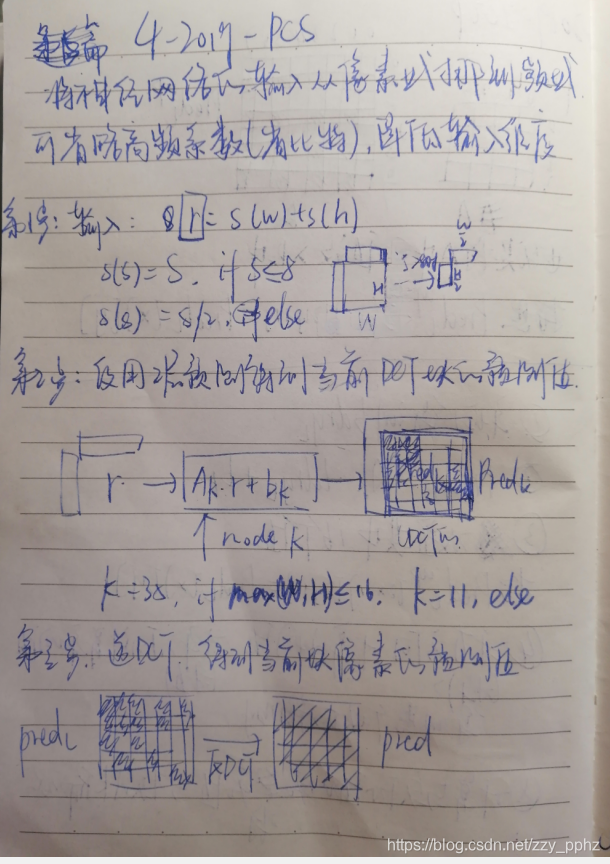 第篇 4-2019-PCS
将神经网络的输入从像素域挪到频域
可省略高频系数(省比特),降低输入维度
第1步: 输入: r = s(w)+s(h)
s(s) = s, if s≤8
s(s) = s/2, else
W
H
第2步: 使用 预测得到当前DCT块的预测值
r → Ak·r+bk → Predk
↑ mode k
k=35, if max(W,H)≤16; k=11, else
第三步: 逆DCT 得到当前块像素的预测值
pred 反DCT pred
https://blog.csdn.net/zzy_pphz